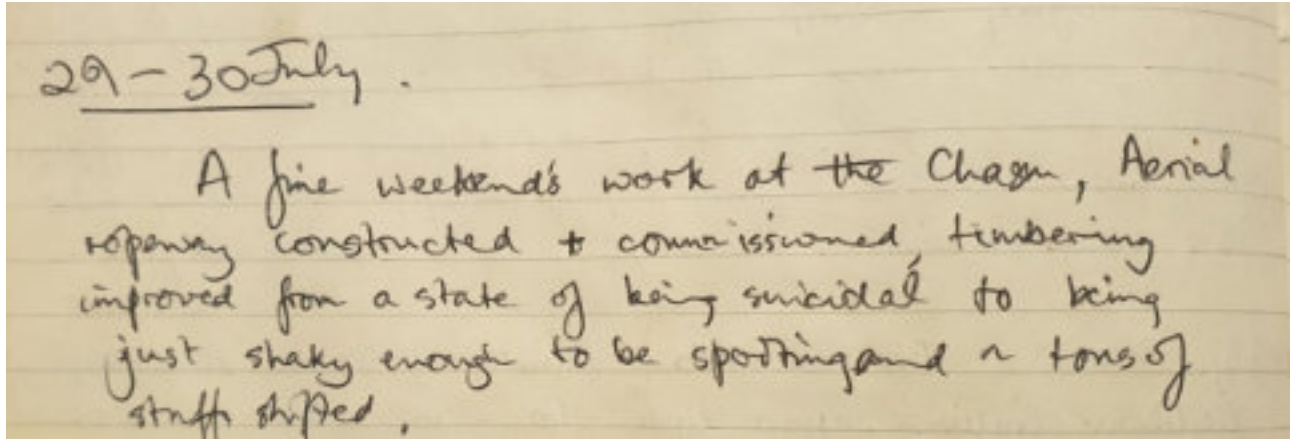 29 – 30 July.
A fine weekend's work at the Chasm, Aerial
ropeway constructed + commissioned, timbering
improved from a state of being suicidal to being
just shaky enough to be sporting and n tons of
stuff shifted.